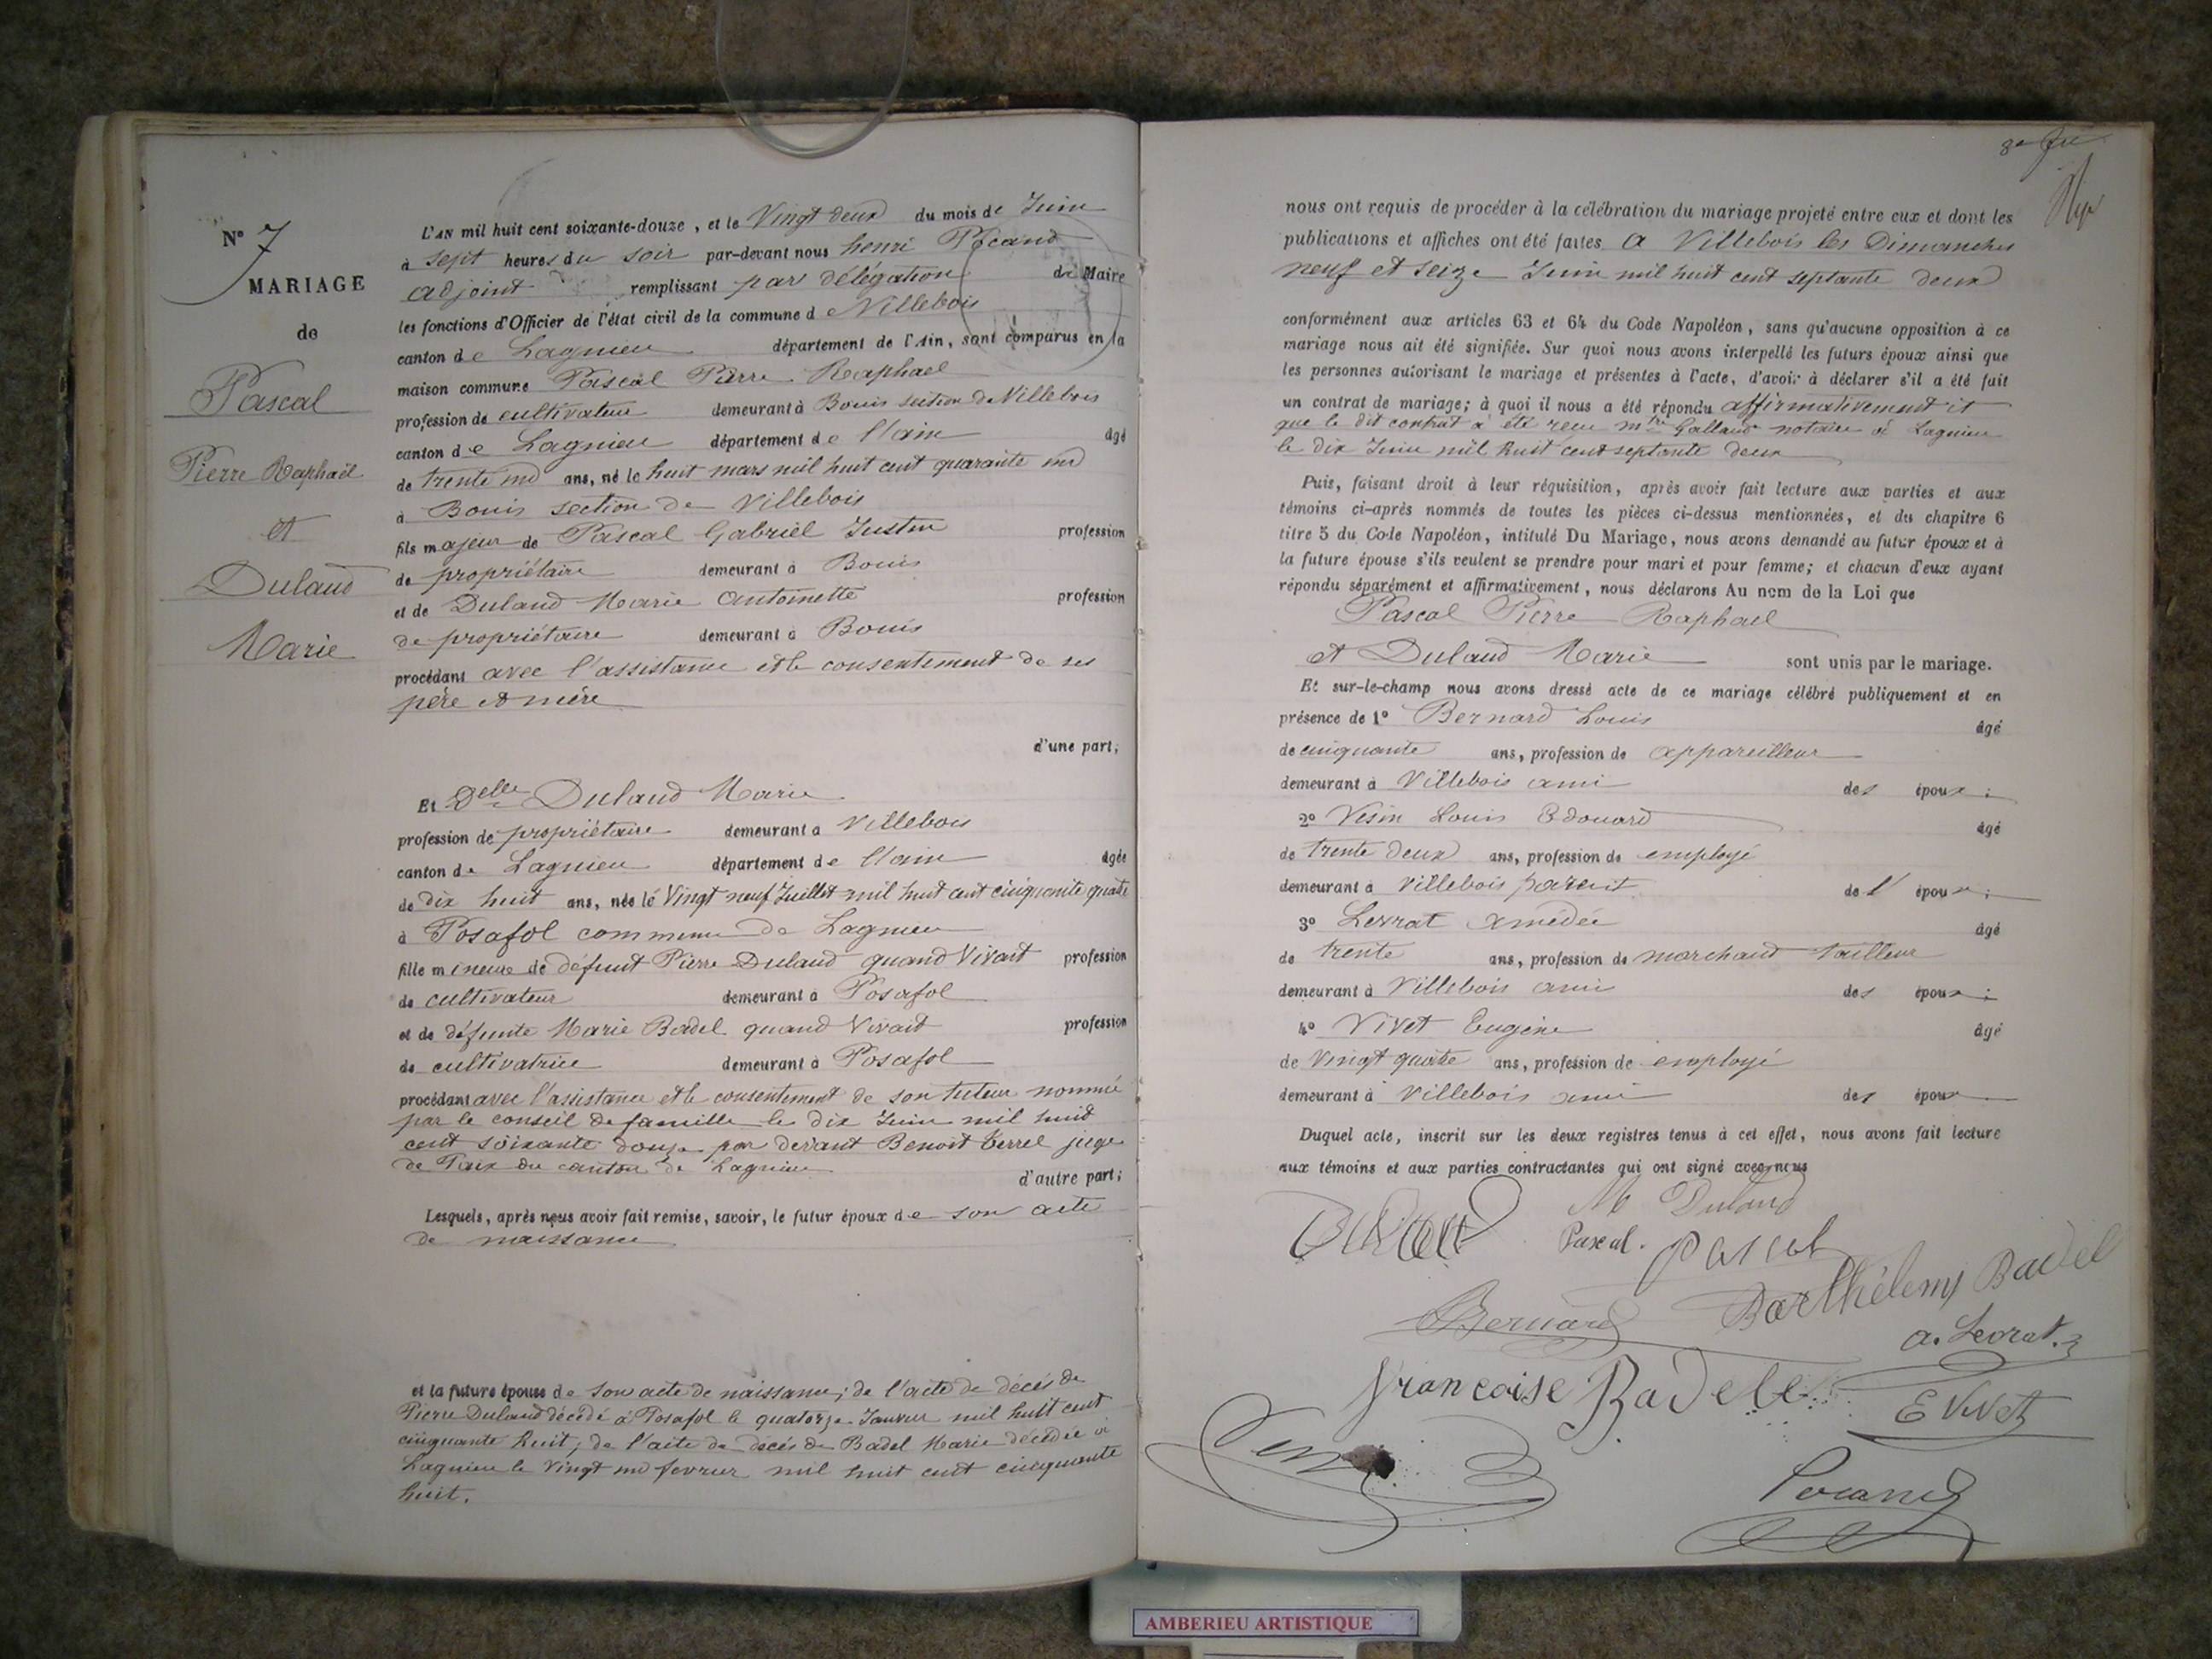 N° 7
MARIAGE
de
Pascal
Pierre Raphaël
et
Dulaud
Marie
L'AN mil huit cent soixante-douze, et le Vingt deux du mois de Juin
à sept heures du soir par-devant nous henri Pocand
adjoint remplissant par délégation de Maire
les fonctions d'Officier de l'état civil de la commune de Villebois
canton de Lagnieu département de l'Ain, sont comparus en la
maison commune Pascal Pierre Raphael
profession de cultivateur demeurant à Bouis section de Villebois
canton de Lagnieu département de l'ain âgé
de trente un ans, né le huit mars mil huit cent quarante un
à Bouis section de Villebois
fils majeur de Pascal Gabriel Justin profession
de propriétaire demeurant à Bouis
et de Dulaud Marie Antoinette profession
de propriétaire demeurant à Bouis
procédant avec l'assistance et le consentement de ses
père et mère
d'une part;
Et Delle Dulaud Marie
profession de propriétaire demeurant à Villebois
canton de Lagnieu département de l'ain âgée
de dix huit ans, née le Vingt neuf Juillet mil huit cent cinquante quatre
à Posafol commune de Lagnieu
fille mineure de défunt Pierre Dulaud quand Vivait profession
de cultivateur demeurant à Posafol
et de défunte Marie Badel quand Vivait profession
de cultivatrice demeurant à Posafol
procédant avec l'assistance et le consentement de son tuteur nommé
par le conseil de famille le dix Juin mil huit
cent soixante douze par devant Benoit Terrel juge
de Paix du canton de Lagnieu
d'autre part;
Lesquels, après nous avoir fait remise, savoir, le futur époux de son acte
de naissance
et la future épouse de son acte de naissance; de l'acte de décès de
Pierre Dulaud décédé à Posafol le quatorze Janvier mil huit cent
cinquante huit; de l'acte de décès de Badel Marie décédée à
Lagnieu le Vingt un fevrier mil huit cent cinquante
huit.
nous ont requis de procéder à la célébration du mariage projeté entre eux et dont les
publications et affiches ont été faites à Villebois les Dimanches
neuf et seize Juin mil huit cent septante deux
conformément aux articles 63 et 64 du Code Napoléon, sans qu'aucune opposition à ce
mariage nous ait été signifiée. Sur quoi nous avons interpellé les futurs époux ainsi que
les personnes autorisant le mariage et présentes à l'acte, d'avoir à déclarer s'il a été fait
un contrat de mariage; à quoi il nous a été répondu affirmativement et
que le dit contrat a été recu mtre Galland notaire à Lagnieu
le dix Juin mil huit cent septante deux
Puis, faisant droit à leur réquisition, après avoir fait lecture aux parties et aux
témoins ci-après nommés de toutes les pièces ci-dessus mentionnées, et du chapitre 6
titre 5 du Code Napoléon, intitulé Du Mariage, nous avons demandé au futur époux et à
la future épouse s'ils veulent se prendre pour mari et pour femme; et chacun d'eux ayant
répondu séparément et affirmativement, nous déclarons Au nom de la Loi que
Pascal Pierre Raphael
et Dulaud Marie sont unis par le mariage.
Et sur-le-champ nous avons dressé acte de ce mariage célébré publiquement et en
présence de 1° Bernard Louis âgé
de cinquante ans, profession de appareilleur
demeurant à Villebois ami des époux;
2° Vesin Louis Edouard âgé
de trente deux ans, profession de employé
demeurant à Villebois parent de l' époux;
3° Levrat Amédée âgé
de trente ans, profession de marchand tailleur
demeurant à Villebois ami des époux;
4° Vivet Eugène âgé
de vingt quatre ans, profession de employé
demeurant à Villebois ami des époux
Duquel acte, inscrit sur les deux registres tenus à cet effet, nous avons fait lecture
aux témoins et aux parties contractantes qui ont signé avec nous
M Dulaud
Pascal. Pascal
Bernard Barthélemy Badel
a. Levrat.
Francoise Badel
E Vivet
Pocand
AMBERIEU ARTISTIQUE